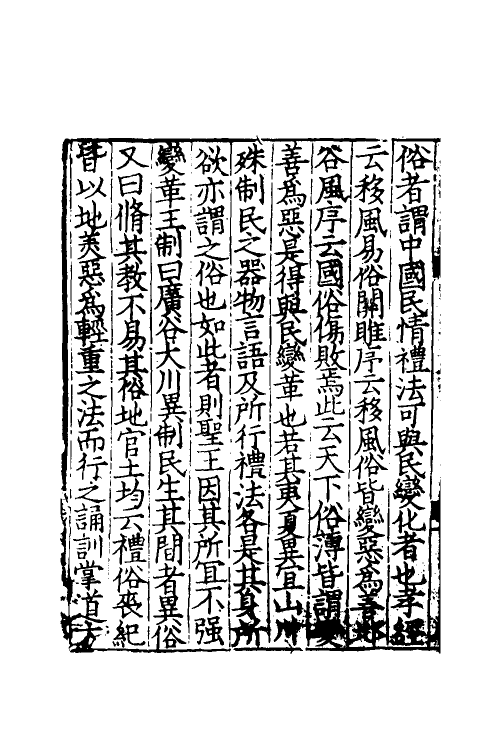 俗者謂中國民情禮法可與民變化者也孝經
云移風易俗關雎序云移風俗皆變惡為善邶
谷風序云國俗傷敗焉此云天下俗薄皆謂變
善為惡是得與民變革也若其夷夏異宜山川
殊制民之器物言語及所行禮法各是其身所
欲亦謂之俗也如此者則聖王因其所宜不强
變革王制曰廣谷大川異制民生其間者異俗
又曰脩其教不易其俗地官土均云禮俗喪紀
皆以地美惡為輕重之法而行之誦訓掌道方